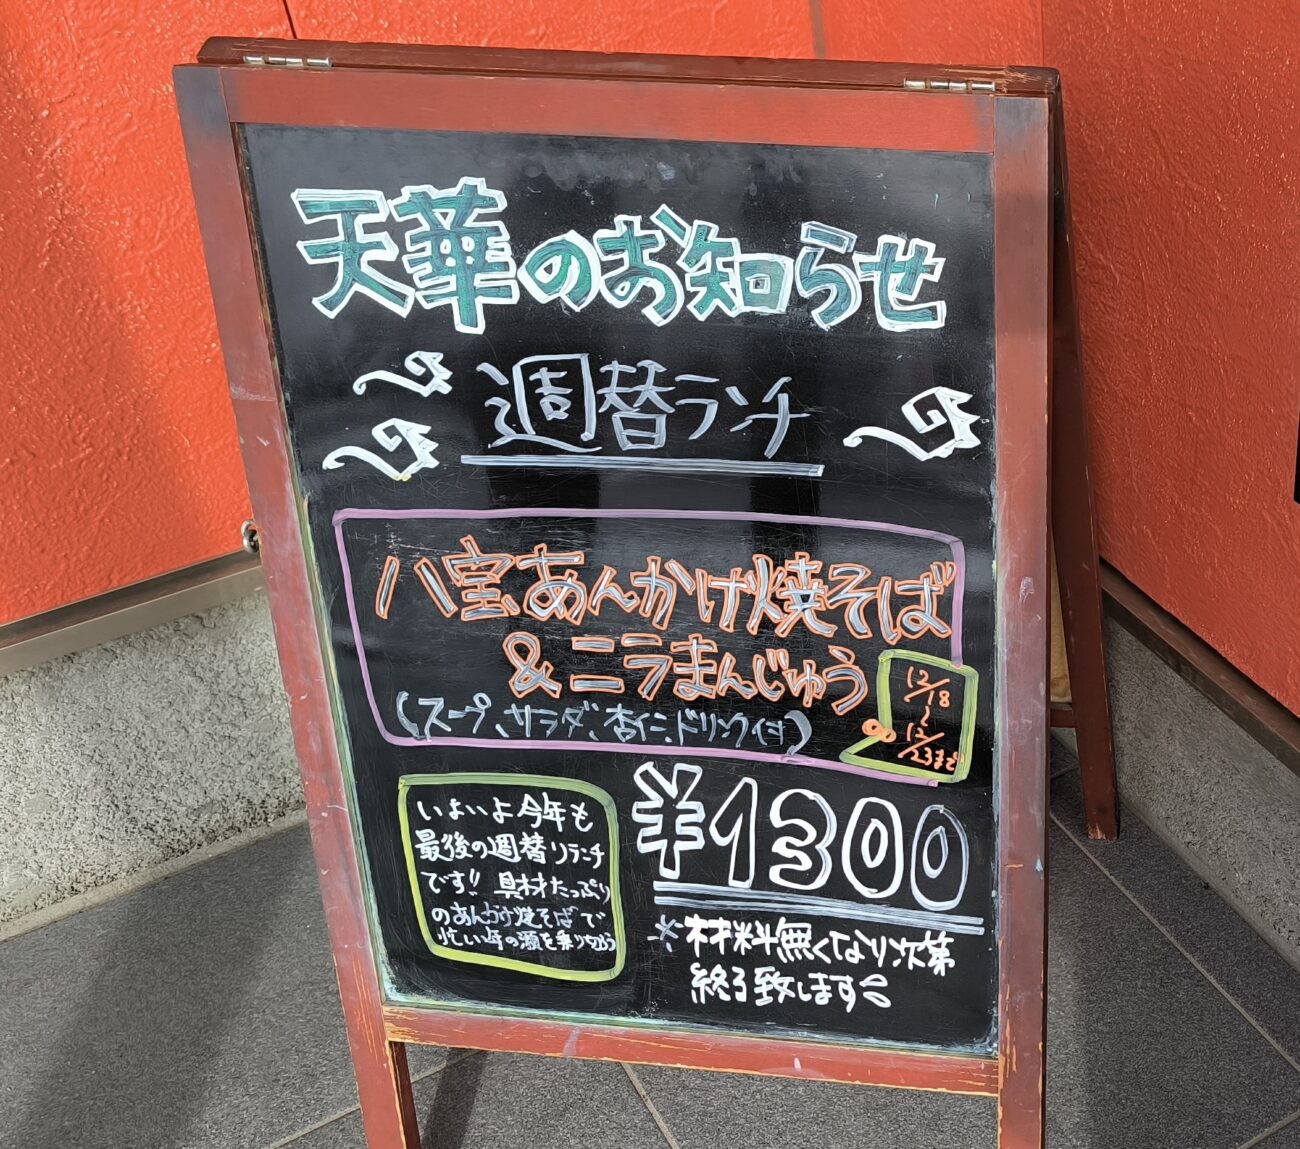 天華のお知らせ
週替ランチ
八宝あんかけ焼そば
&ニラまんじゅう
(スープ、サラダ、杏仁、ドリンク付)
12/18
~
12/23まで
¥1300
いよいよ今年も
最後の週替りランチ
です!! 具材たっぷり
のあんかけ焼そばで
忙しい年の瀬を乗り切ろう
※材料無くなり次第
終了致します